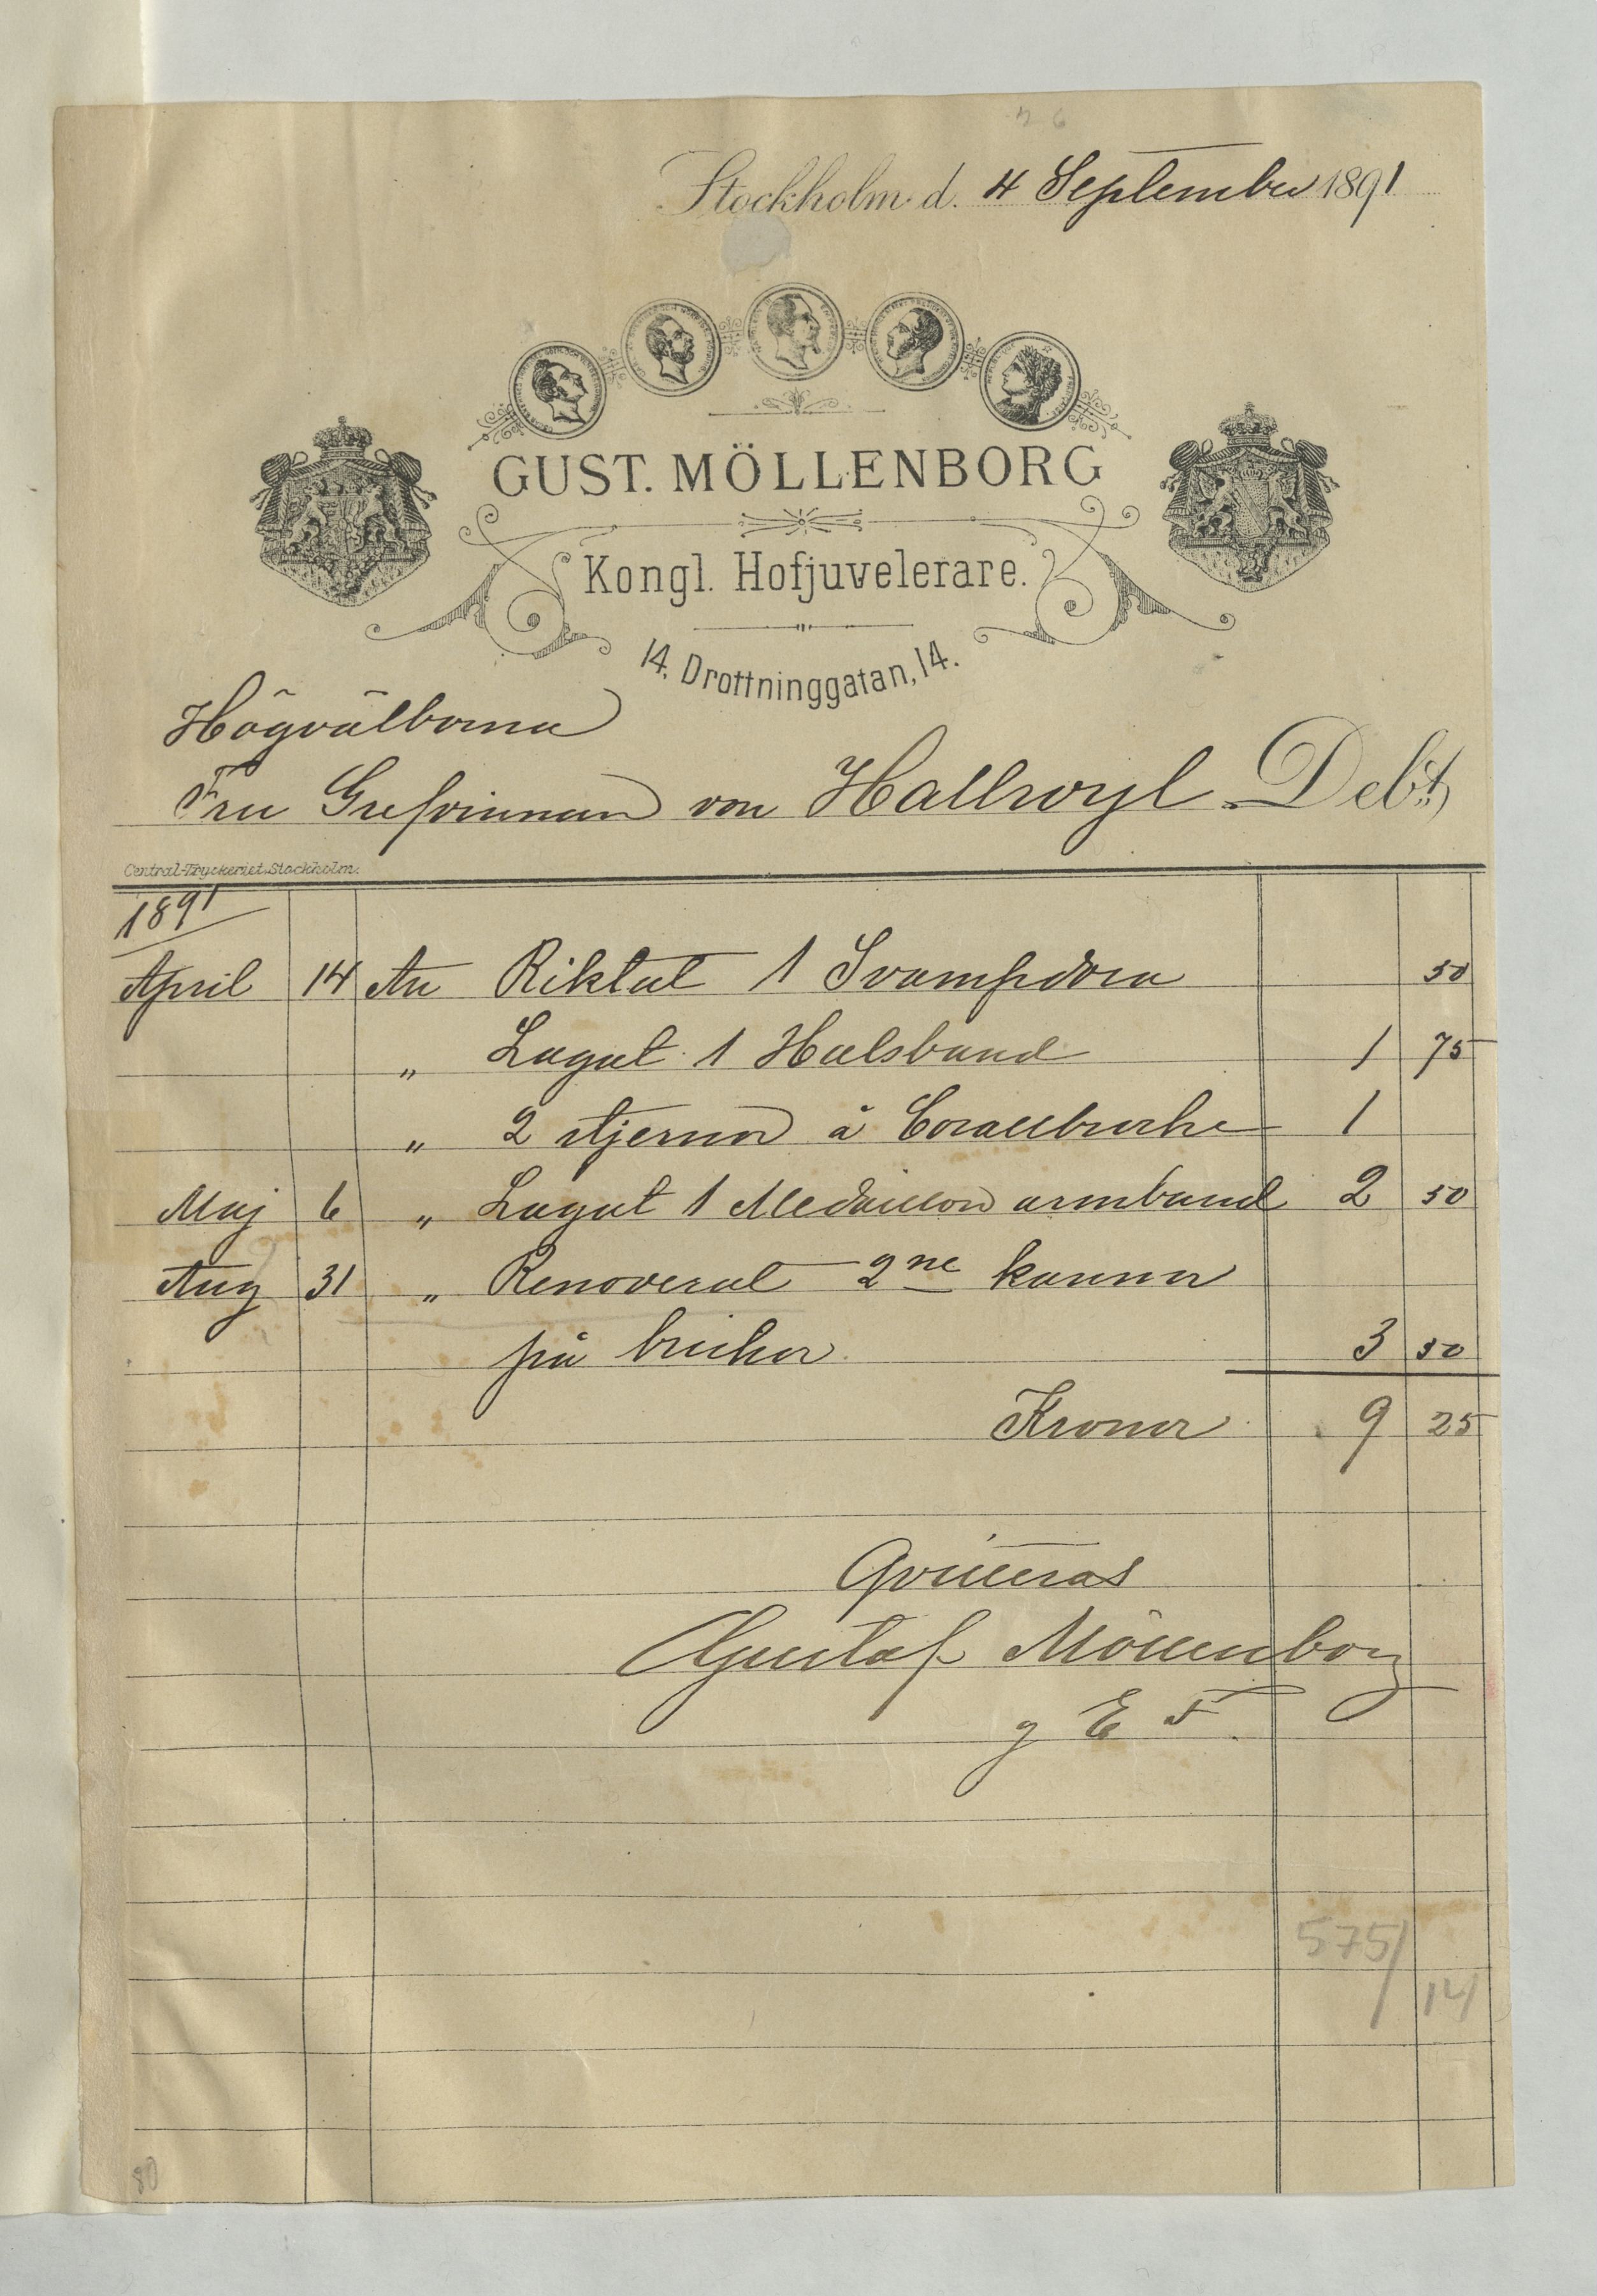 Stockholm d. 4 September 1891
GUST. MÖLLENBORG
Kongl. Hofjuvelerare.
14. Drottninggatan, 14.
Högvälborna
Fru Grefvinnan von Hallwyl Debt
Central-Tryckeriet. Stockholm.
1891
April 14 An Riktat 1 Svampdosa 50
" Lagat 1 Halsband 1 75
" 2 stjernor å Corallbroche 1
Maj 6 " Lagat 1 Medaillon armband 2 50
Aug 31 " Renoverat 2ne kannor
på brickor 3 50
Kronor 9 25
Qvitteras
Gustaf Möllenborg
g E F
575/
14
80